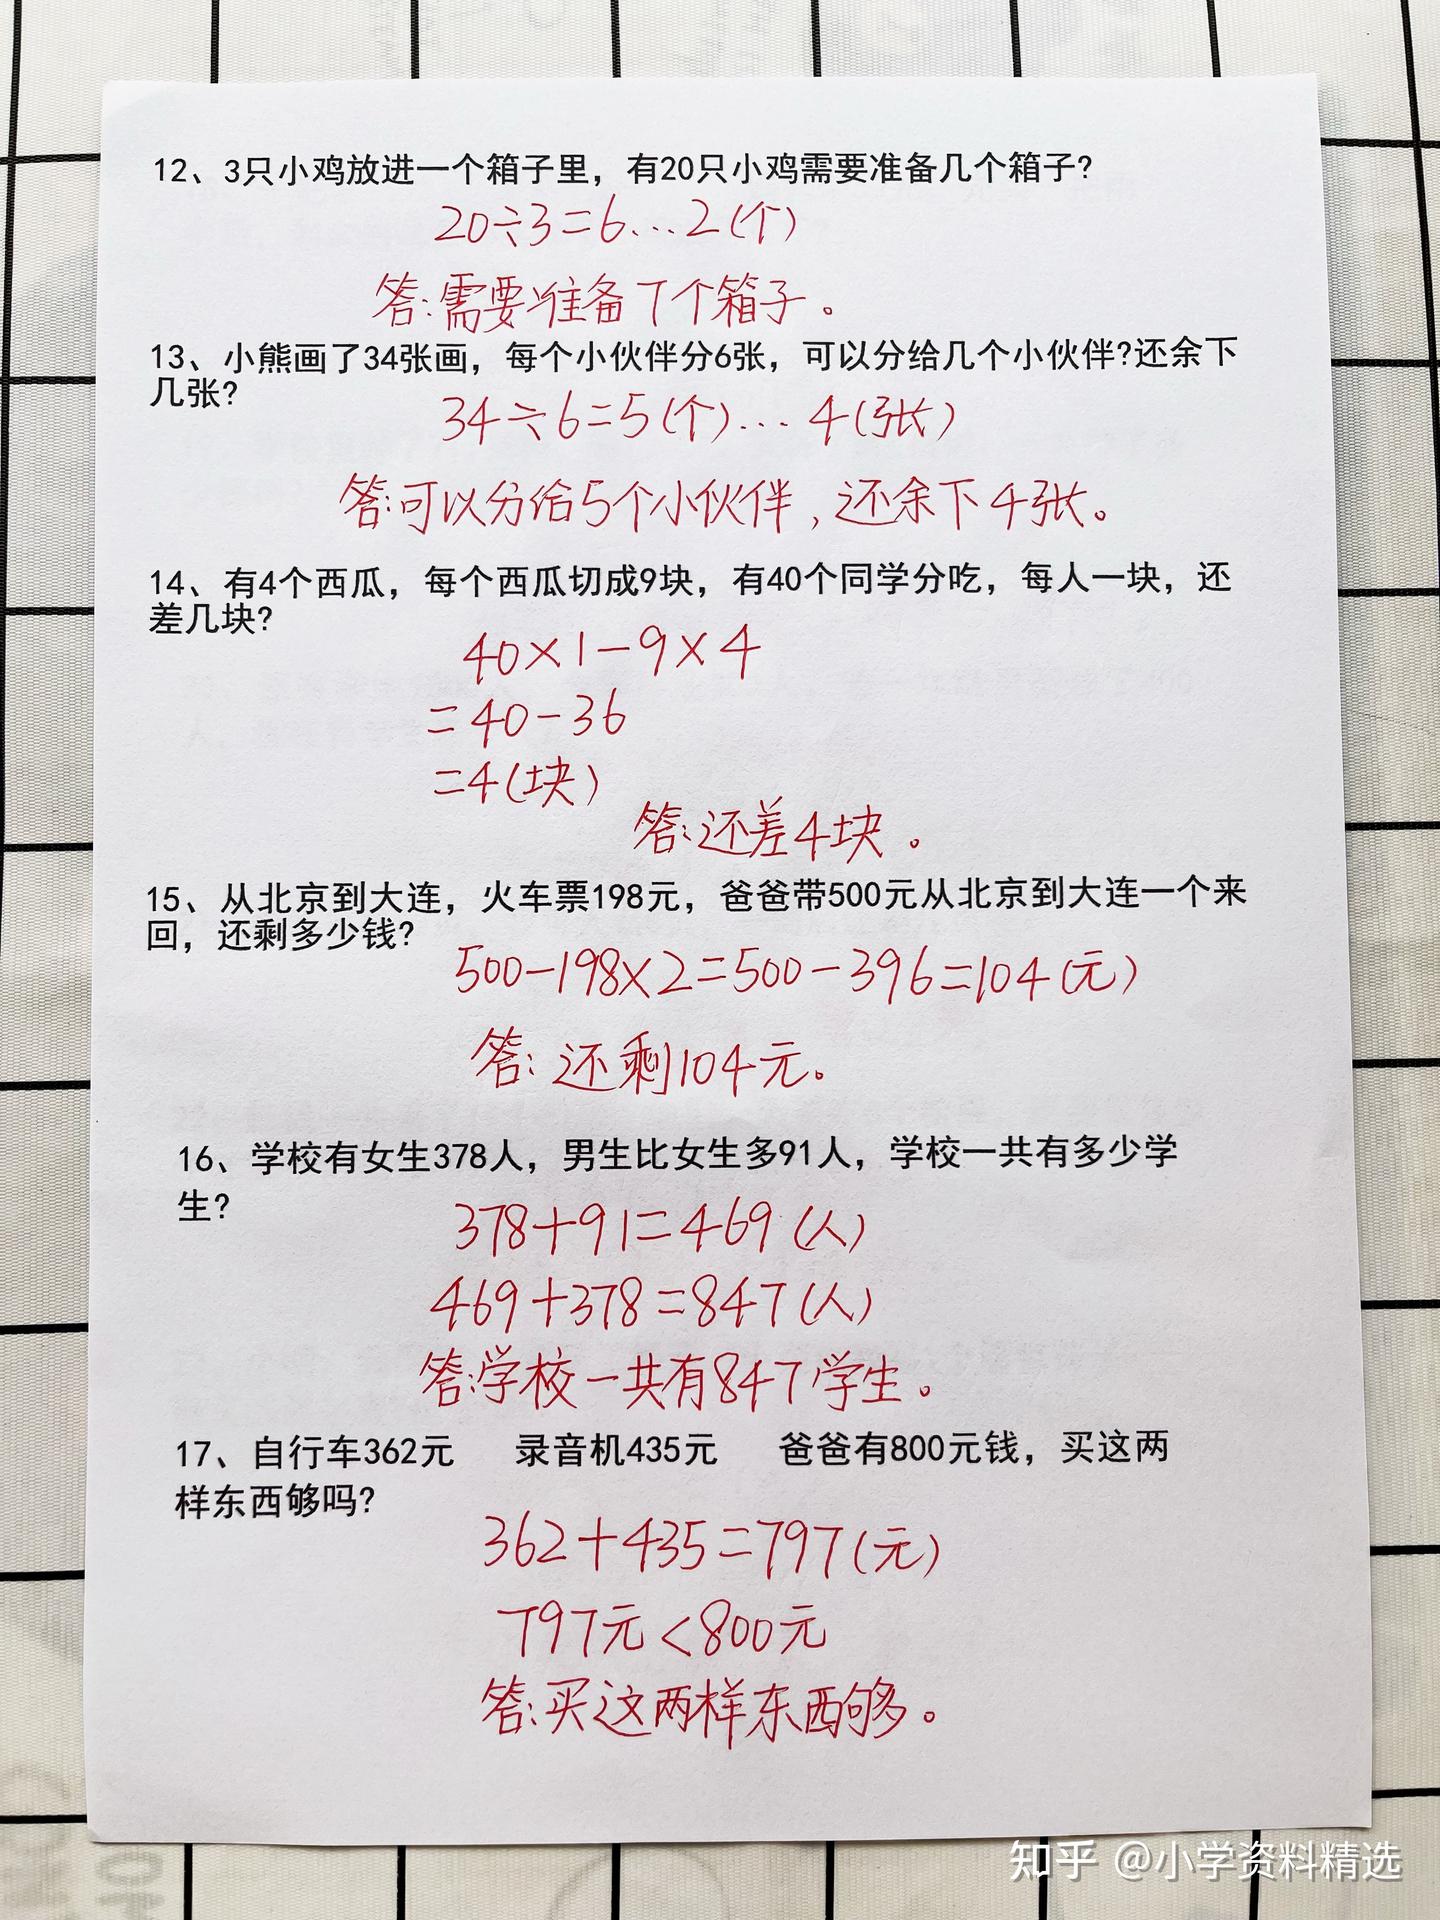 12、3只小鸡放进一个箱子里，有20只小鸡需要准备几个箱子?
20÷3=6...2(个)
答:需要准备7个箱子。
13、小熊画了34张画，每个小伙伴分6张，可以分给几个小伙伴?还余下
几张?
34÷6=5(个)...4(张)
答:可以分给5个小伙伴，还余下4张。
14、有4个西瓜，每个西瓜切成9块，有40个同学分吃，每人一块，还
差几块?
40×1-9×4
=40-36
=4(块)
答:还差4块。
15、从北京到大连，火车票198元，爸爸带500元从北京到大连一个来
回，还剩多少钱?
500-198×2=500-396=104(元)
答:还剩104元。
16、学校有女生378人，男生比女生多91人，学校一共有多少学
生?
378+91=469(人)
469+378=847(人)
答:学校一共有847学生。
17、自行车362元 录音机435元 爸爸有800元钱，买这两
样东西够吗?
362+435=797(元)
797元<800元
答:买这两样东西够。
知乎 @小学资料精选